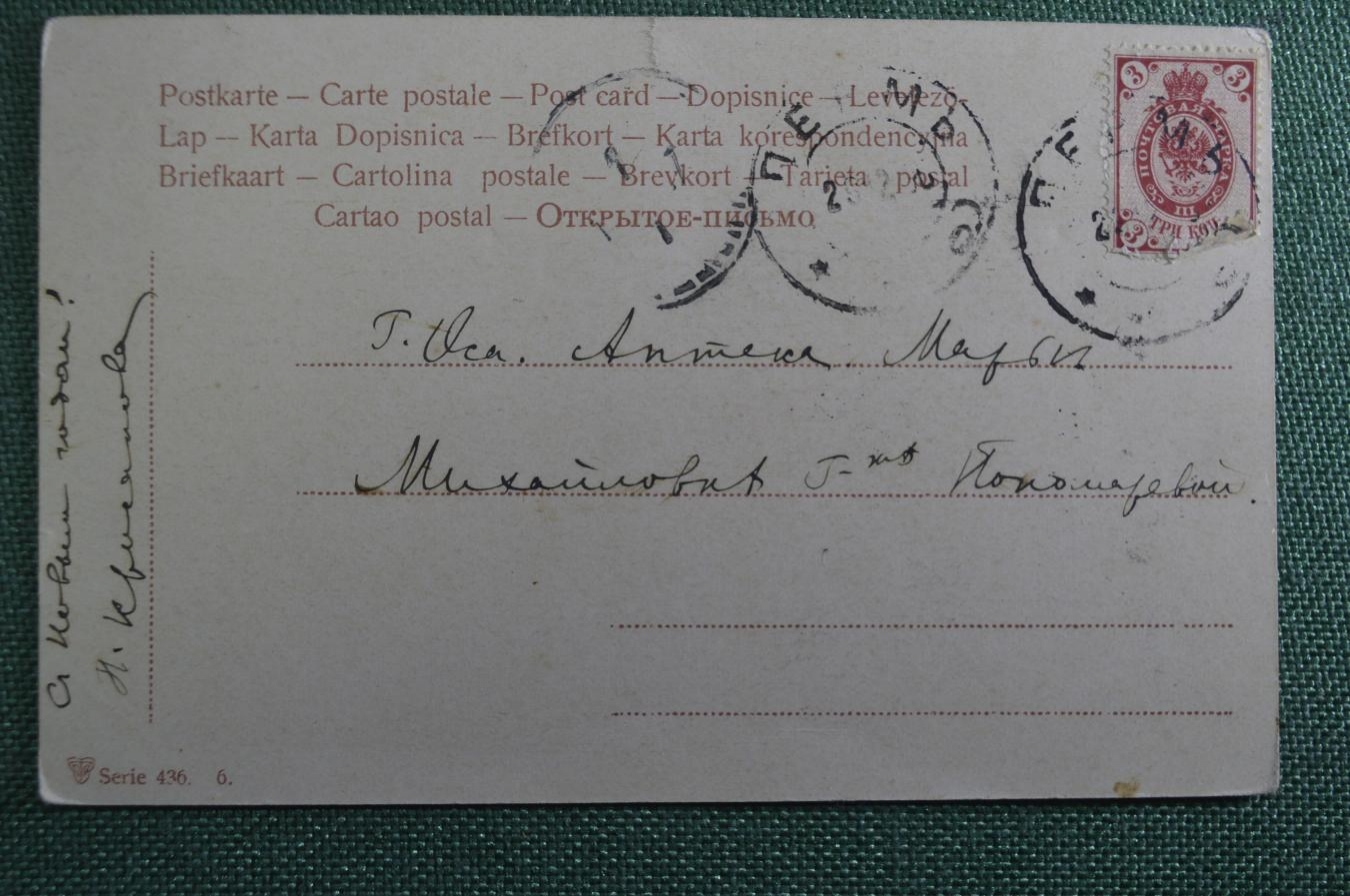 Postkarte — Carte postale — Post card — Dopisnice — Levelező
Lap — Karta Dopisnica — Brefkort — Karta korespondencyjna
Briefkaart — Cartolina postale — Brevkort — Tarjeta postal
Cartao postal — Открытое-письмо
3 3
ПОЧТОВАЯ МАРКА
III
ТРИ КОП.
3
ПЕРМЬ
ПЕРМЬ
Г. Оса. Аптека Марьи
Михайловнѣ Г-жѣ Пономаревой.
С Новым годом!
Н.
Serie 436. 6.